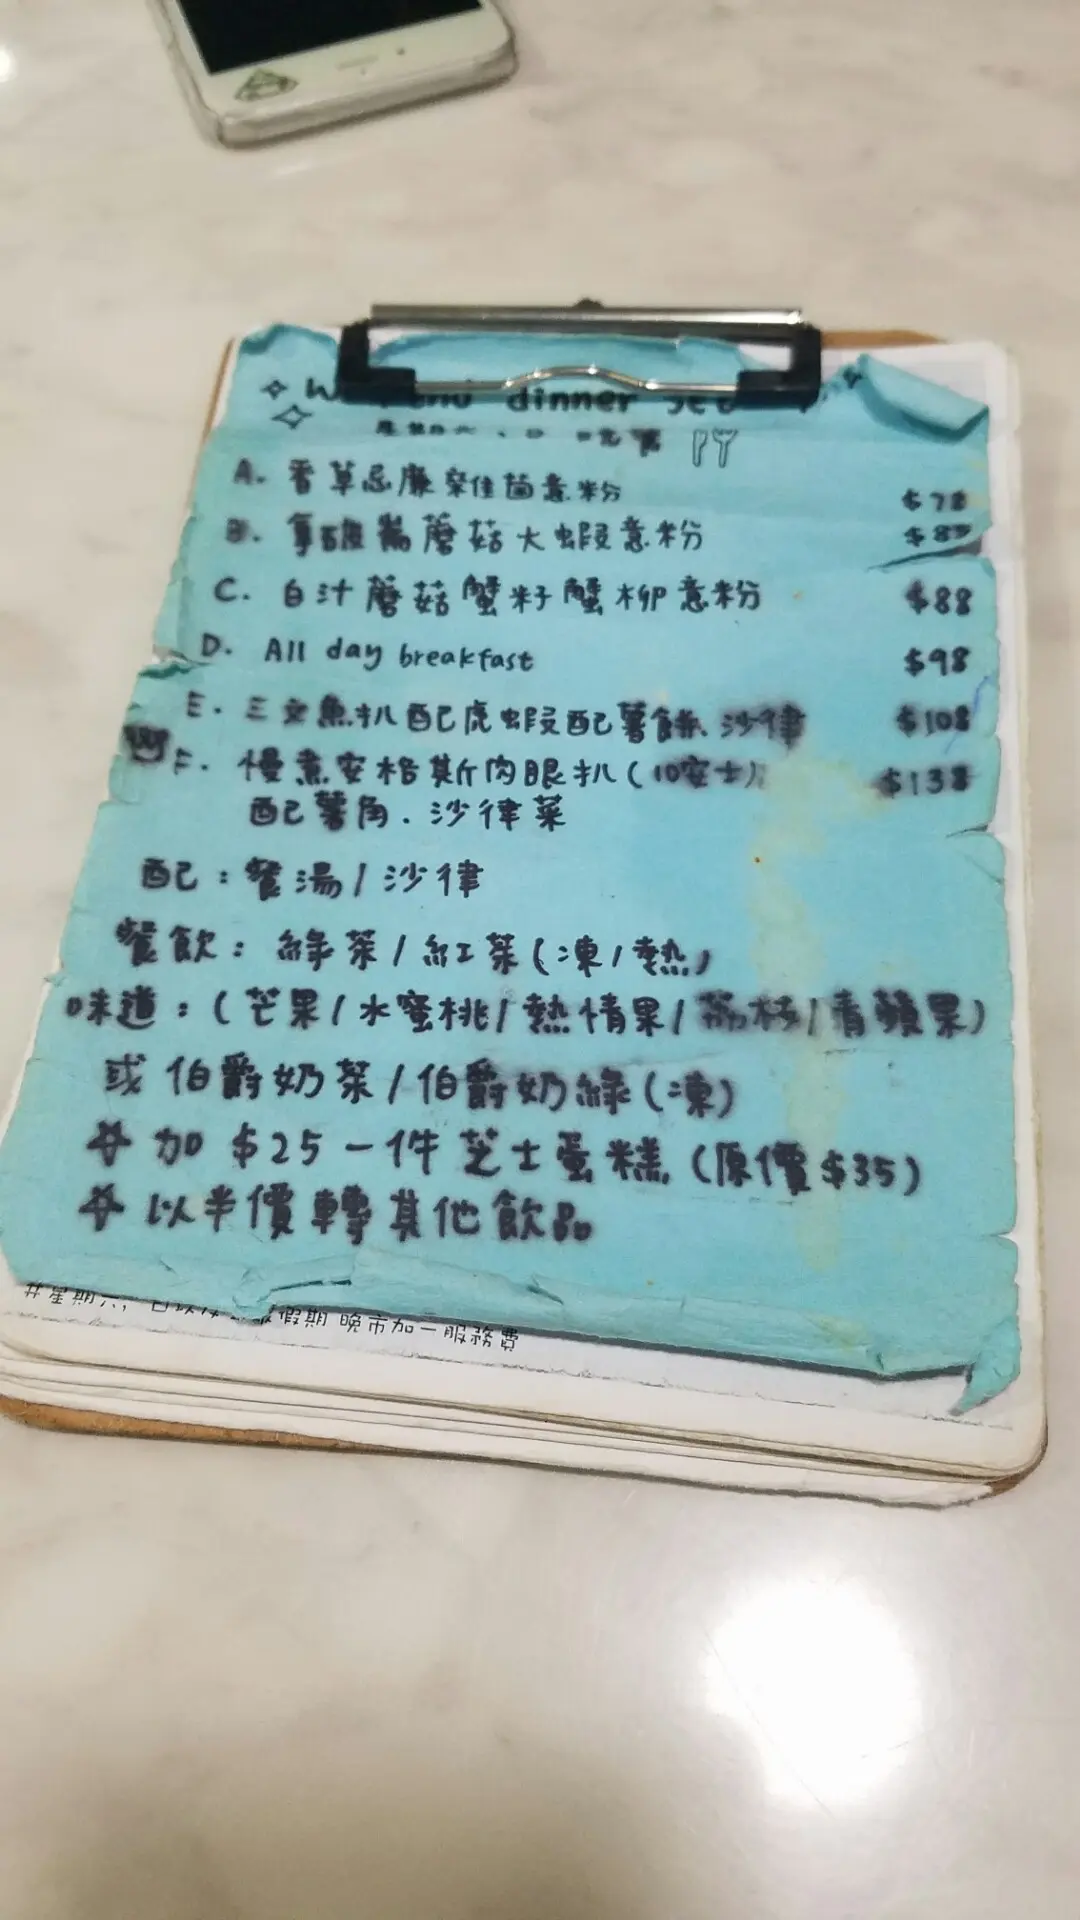 dinner set
星期六、日 晚市
A. 香草忌廉雜菌意粉 $78
B. 拿破崙蘑菇大蝦意粉 $85
C. 白汁蘑菇蟹籽蟹柳意粉 $88
D. All day breakfast $98
E. 三文魚扒配虎蝦配薯餅.沙律 $108
F. 慢煮安格斯肉眼扒(10安士) $138
配薯角.沙律菜
配:餐湯/沙律
餐飲:綠茶/紅茶(凍/熱)
味道:(芒果/水蜜桃/熱情果/荔枝/青蘋果)
或 伯爵奶茶/伯爵奶綠(凍)
加 $25 一件 芝士蛋糕 (原價$35)
以半價轉其他飲品
#星期六, 假期 晚市加一服務費